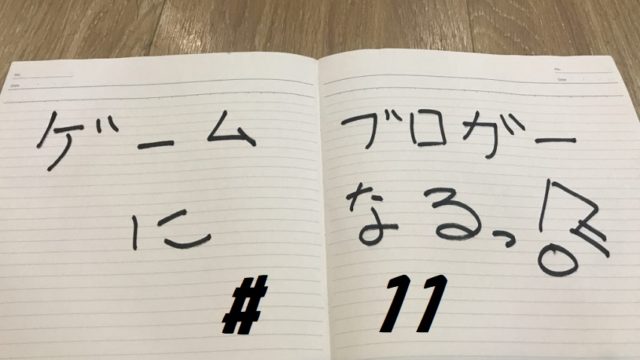 ゲーム ブロガー
に なるっ!
# 11